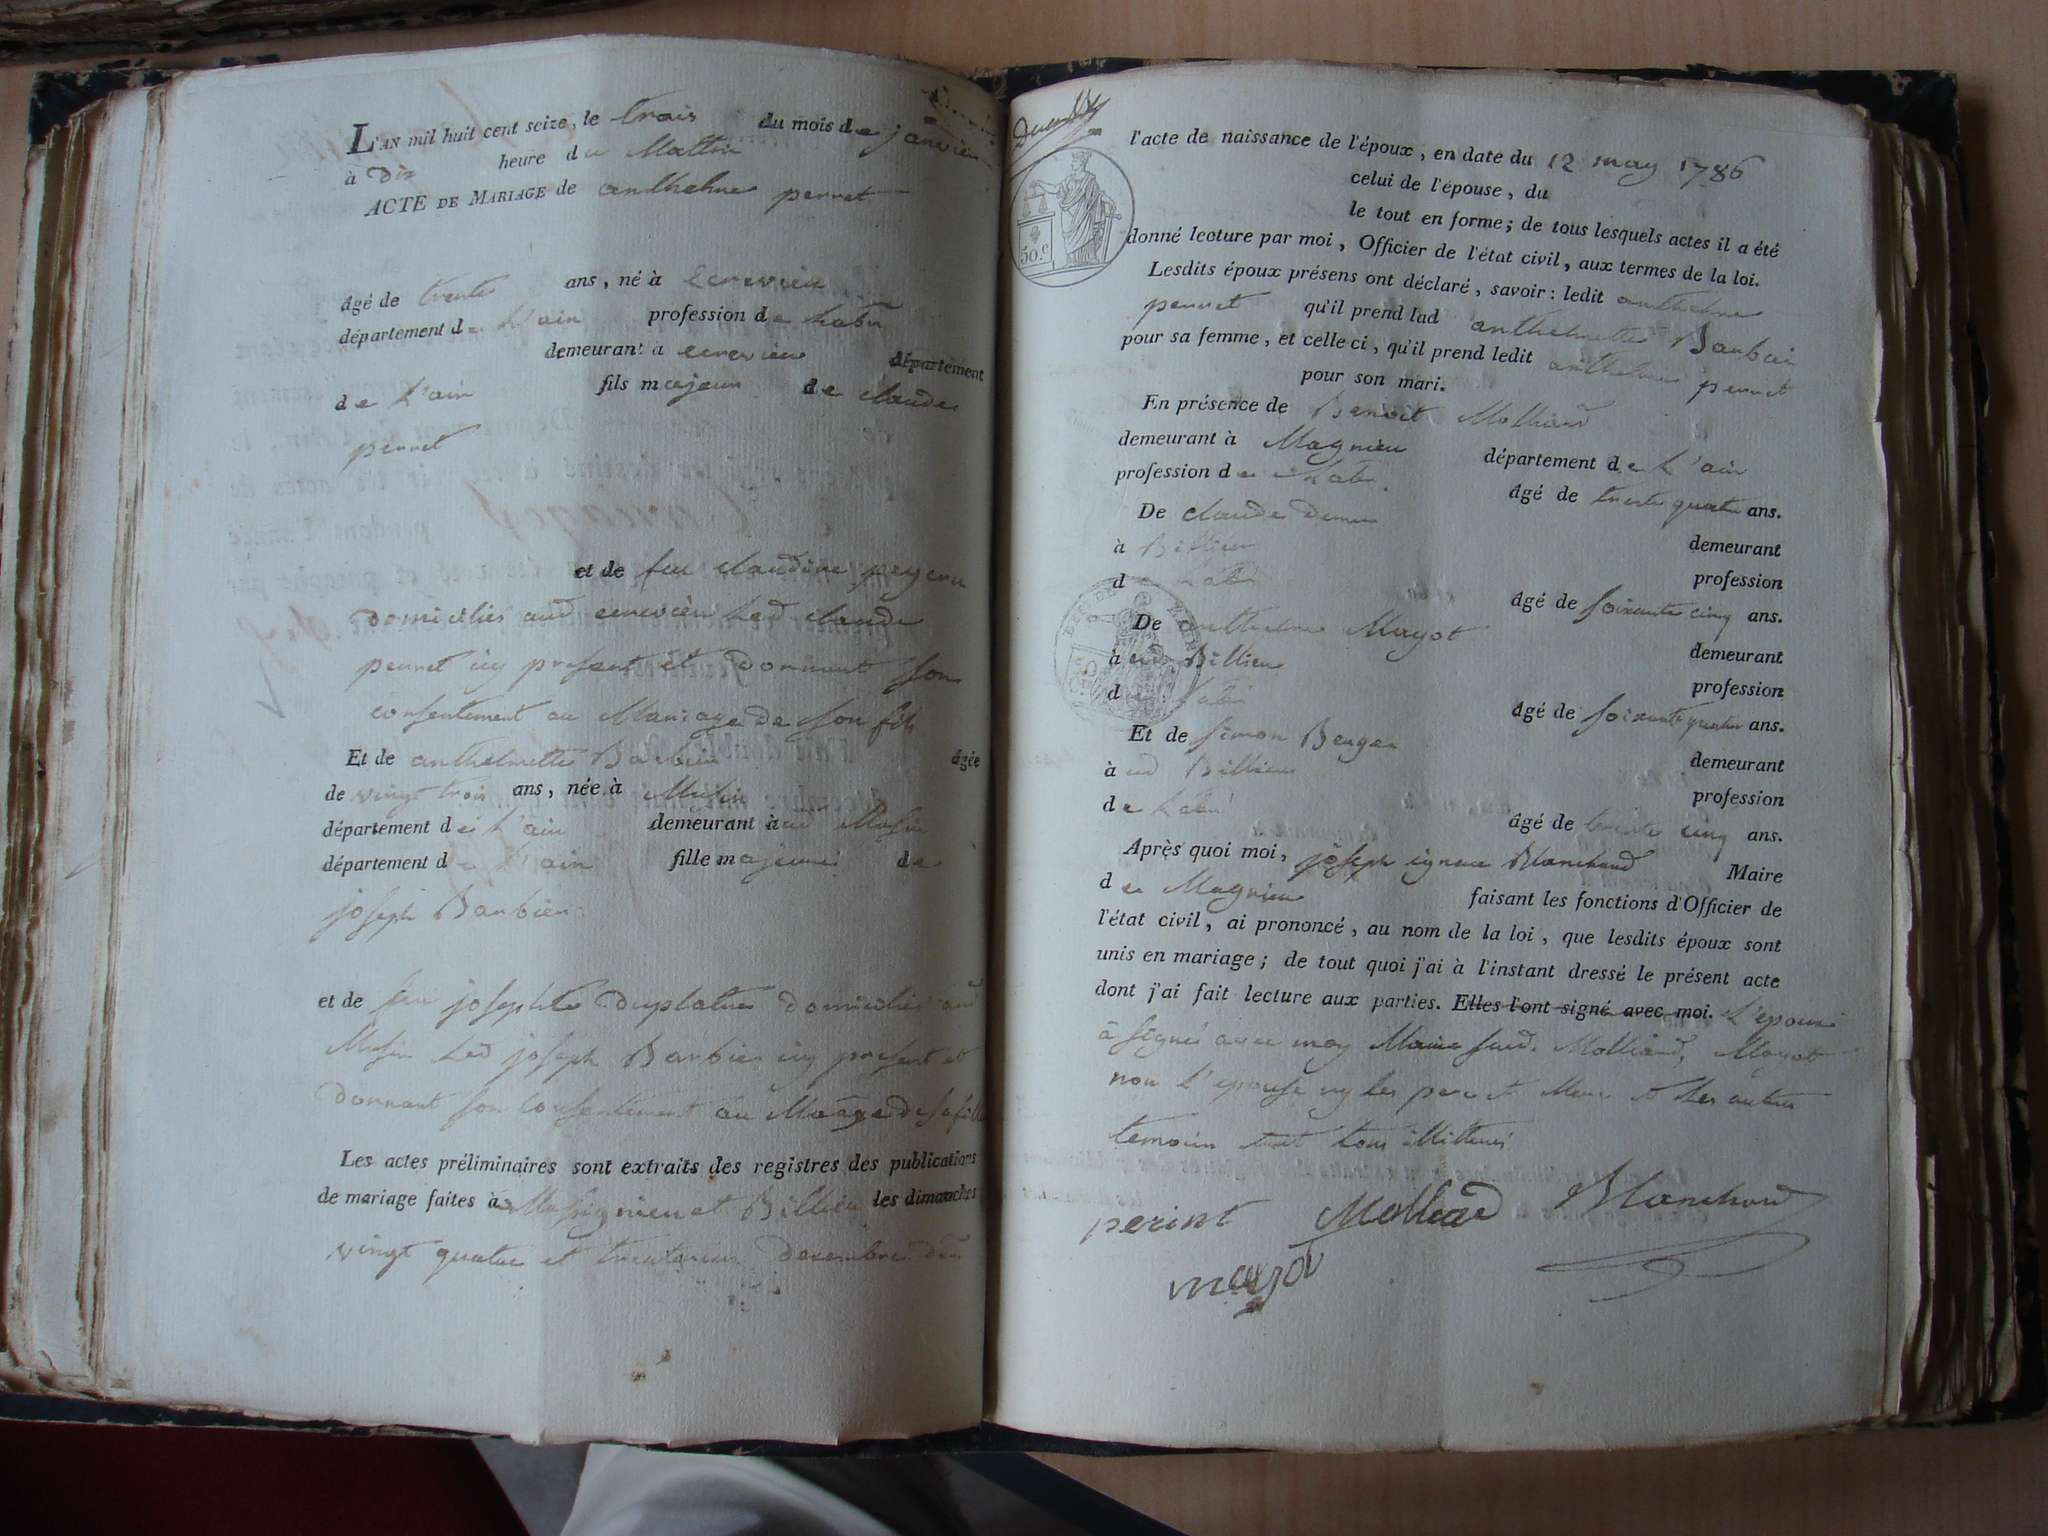 L'AN mil huit cent seize, le trois du mois de janvier
à dix heure du Mattin
ACTE DE MARIAGE de anthelme perret
âgé de trente ans, né à Ecrevieu
département de L'ain profession de Labr
demeurant à ecrevieu département
de L'ain fils majeur de claude
perret
et de feu claudine
domiciliés aud ecrevieu Led claude
perret icy present et donnant son
consentement au Mariage de son fils
Et de anthelmette Barbier âgée
de vingt trois ans, née à Musin
département de L'ain demeurant à ud Musin
département de L'ain fille majeure de
joseph Barbier
et de feu josephte duplatre domiciliés aud
Musin Led joseph Barbier icy present et
donnant son Consentement au Mariage de sa fille
Les actes préliminaires sont extraits des registres des publications
de mariage faites à Massignieu et Billieu les dimanches
vingt quatre et trente un decembre
l'acte de naissance de l'époux, en date du 12 may 1786
celui de l'épouse, du
le tout en forme; de tous lesquels actes il a été
donné lecture par moi, Officier de l'état civil, aux termes de la loi.
Lesdits époux présens ont déclaré, savoir: ledit anthelme
perret qu'il prend lad anthelmette Barbier
pour sa femme, et celle ci, qu'il prend ledit anthelme perret
pour son mari.
En présence de Benoit Molliard
demeurant à Magnieu département de L'ain
profession de Labr. âgé de trente quatre ans.
De claude demeurant
à Billieu profession
de Labr âgé de soixante cinq ans.
De anthelme Mayot demeurant
à ud Billieu profession
de Labr âgé de soixante quatre ans.
Et de simon Berger demeurant
à ud Billieu profession
de Labr âgé de trente cinq ans.
Après quoi moi, joseph ignace Blanchard Maire
de Magnieu faisant les fonctions d'Officier de
l'état civil, ai prononcé, au nom de la loi, que lesdits époux sont
unis en mariage; de tout quoi j'ai à l'instant dressé le présent acte
dont j'ai fait lecture aux parties. Elles l'ont signé avec moi. L'epoux
à signé avec moy Maire Molliard, Mayot
non L'epouse ny les pere et Les autres
temoins tous illitterés
50.c
perint Molliard Blanchard
mayot